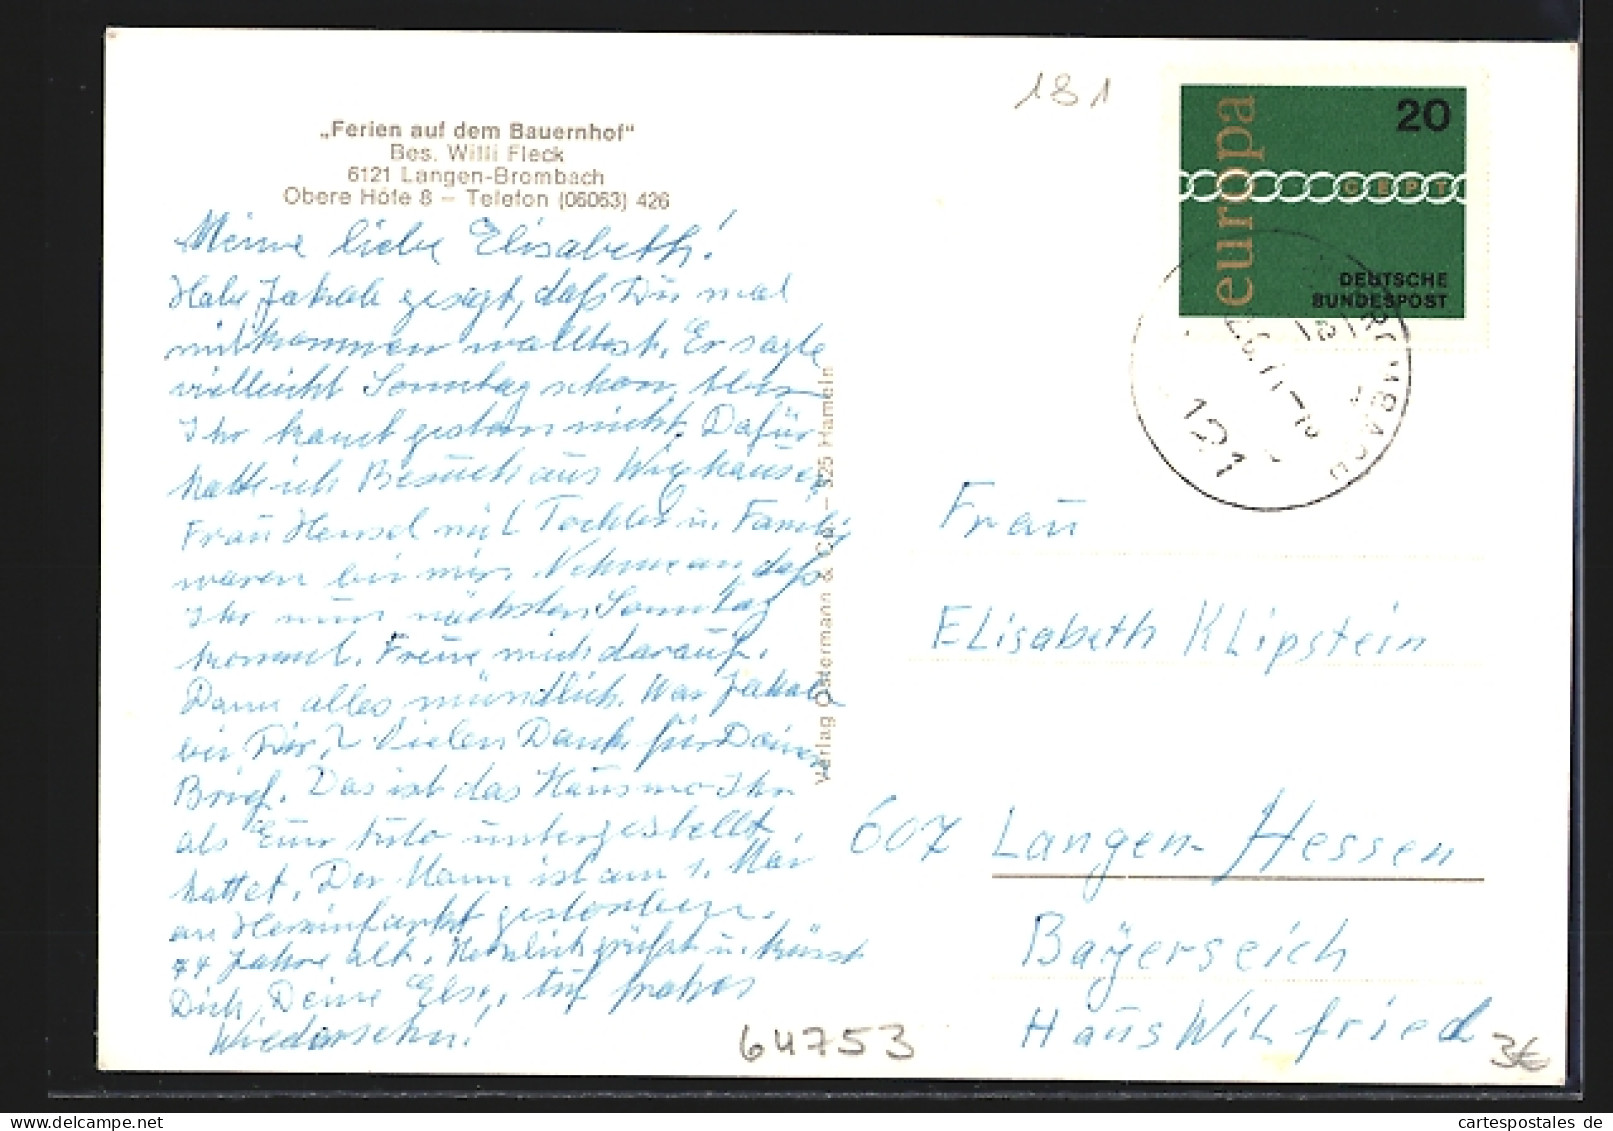 181
20
europa
CEPT
DEUTSCHE
BUNDESPOST
„Ferien auf dem Bauernhof"
Bes. Willi Fleck
6121 Langen-Brombach
Obere Höfe 8 – Telefon (06063) 426
Meine liebe Elisabeth!
Habe Jakob gesagt, daß Du mal
mitkommen wolltest. Er sagte
vielleicht Sonntag schon, aber
Ihr kamt gestern nicht. Dafür
hatte ich Besuch aus Wixhausen
Frau Hensel mit Tochter u. Familie
waren bei mir. Nehme an, daß
Ihr nun nächsten Sonntag
kommt. Freue mich darauf.
Dann alles mündlich. War Jakob
bei Dir? Vielen Dank für Deinen
Brief. Das ist das Haus wo Ihr
als Euer Auto untergestellt
hattet. Der Mann ist am 1. Mai
an Herzinfarkt gestorben.
44 Jahre alt. Herzlich grüßt u. küsst
Dich, Deine Else, Auf frohes
Wiedersehn!
Verlag Ostermann & Co. – 325 Hameln
Frau
Elisabeth Klipstein
607 Langen-Hessen
Bayerseich
Haus Wilfried
64753
3€
cartespostales de